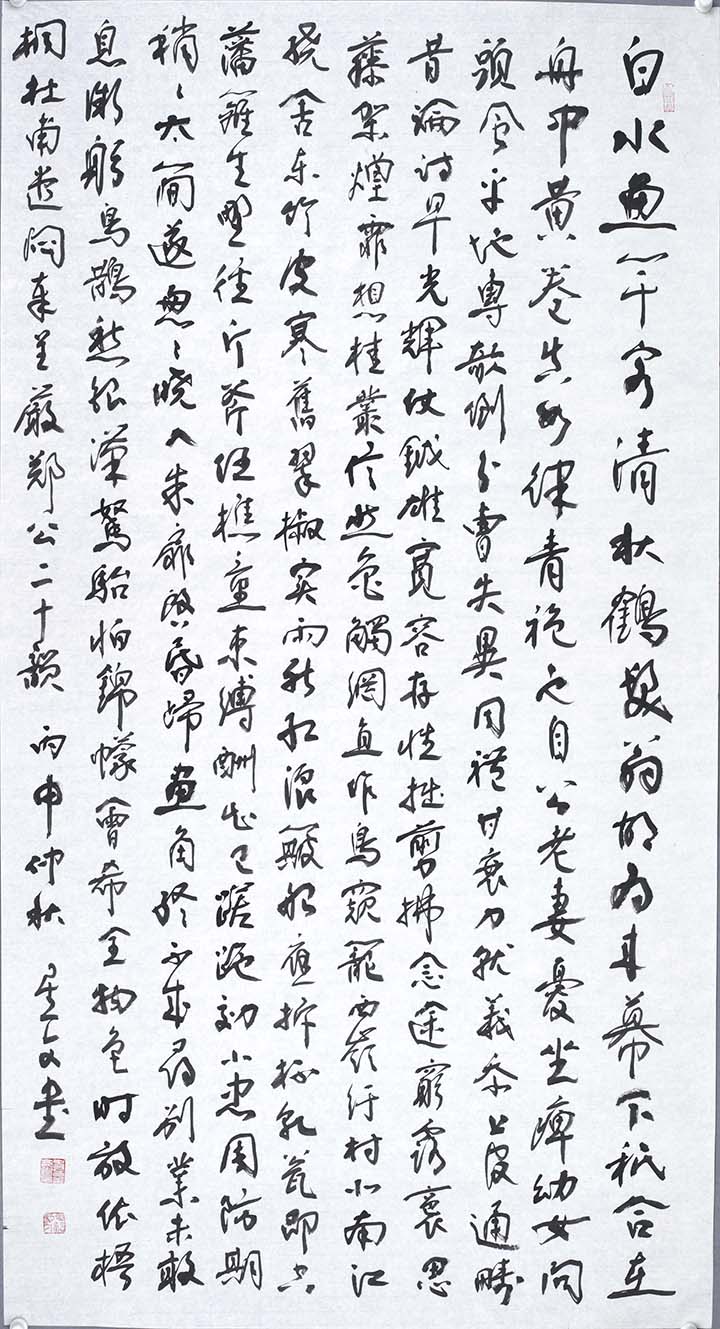 白水魚竿客清秋鶴髮翁胡為來幕下祇合在
舟中黃卷真如律青袍也自公老妻憂坐痺幼女問
頭風平地專欹倒分曹失異同禮甘衰力就義忝上官通疇
昔論詩早光輝仗鉞雄寬容存性拙剪拂念途窮露裛思
藤架煙霏想桂叢信然龜觸網直作鳥窺籠西嶺紆村北南江
繞舍東竹皮寒舊翠椒實雨新紅浪簸船應拆杯乾甕即空
藩籬生野徑斤斧任樵童束縛酬知己蹉跎効小忠周防期
稍〻太簡遂怱〻曉入朱扉啓昏歸畫角終不成尋別業未敢
息微躬烏鵲愁銀漢駑駘怕錦幪會希全物色時放依梧
桐杜甫遣悶奉呈嚴鄭公二十韻 丙申仲秋 書